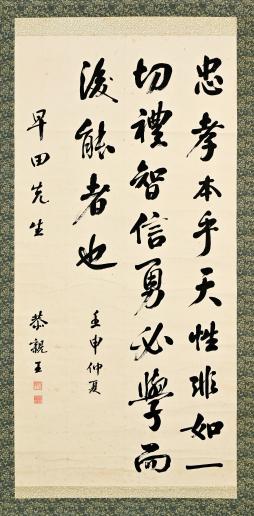 忠孝本乎天性非如一
切禮智信勇必學而
後能者也
壬申仲夏
早田先生
恭親王